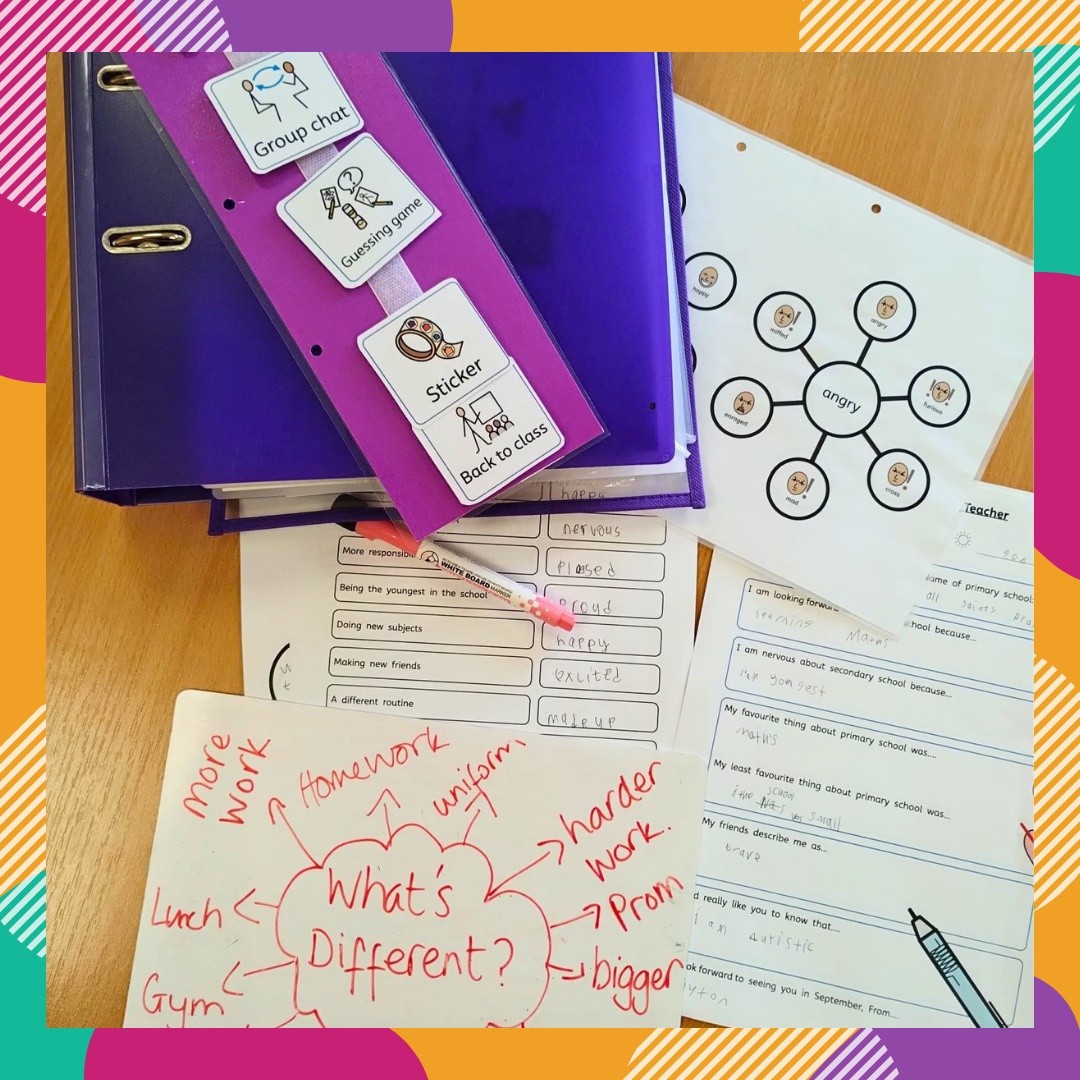 Group chat
Guessing game
Sticker
Back to class
happy
miffed
angry
furious
cross
mad
enraged
angry
happy
nervous
More responsibi
WHITE BOARD
MARKER
Plased
Being the youngest in the school
Proud
Doing new subjects
happy
Making new friends
excited
A different routine
made up
Teacher
ame of primary school:
all saints
I am looking forwar
chool because...
learning Maths
I am nervous about secondary school because...
I'm yongest
My favourite thing about primary school was....
maths
My least favourite thing about primary school was...
school
small
My friends describe me as...
brave
d really like you to know that....
I am Autistic
ok forward to seeing you in September, From....
yton
What's
Different?
More
work
Homework
uniform
harder
work.
Prom
bigger
Lunch
Gym